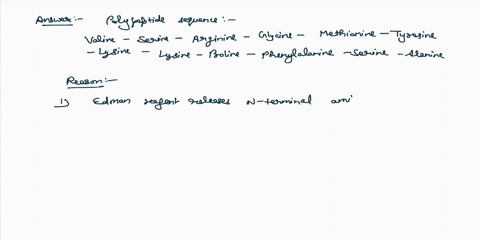 Answer:- Polypeptide sequence:-
Valine - Serine - Arginine - Glycine - Methionine - Tyrosine
- Lysine - Lysine - Proline - Phenylalanine - Serine - Alanine
Reason:-
1) Edman reagent releases N-terminal ami